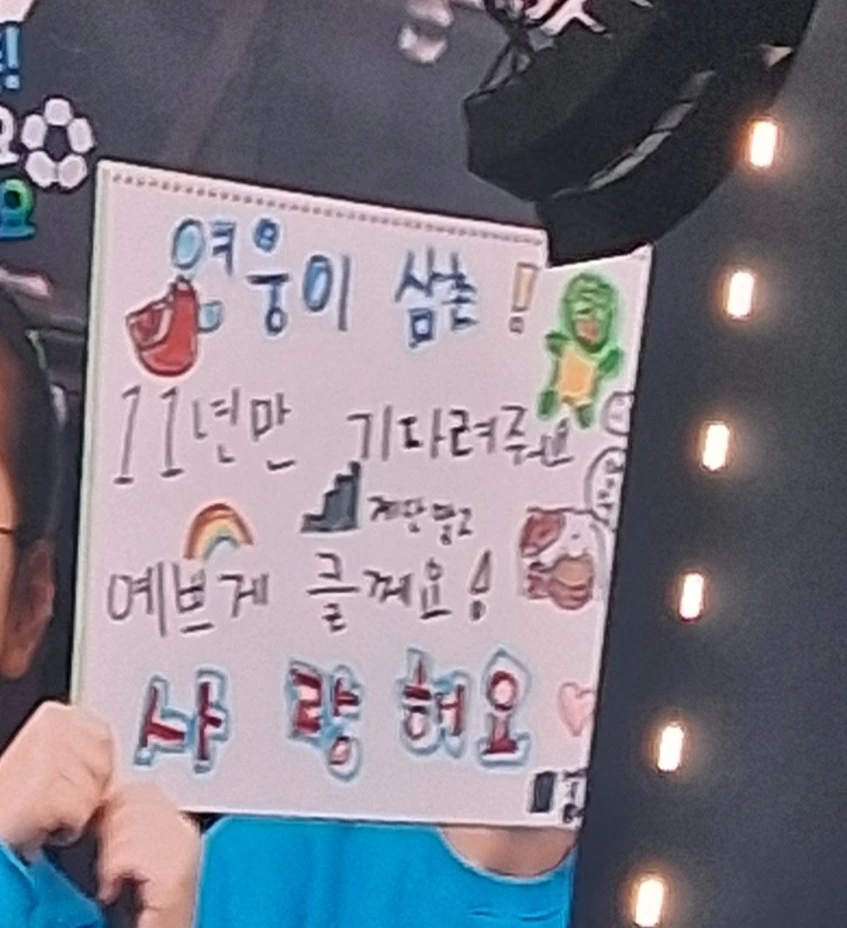 영웅이 삼촌!
11년만 기다려주요
계단 밟고
예쁘게 클께요!
사랑혀요